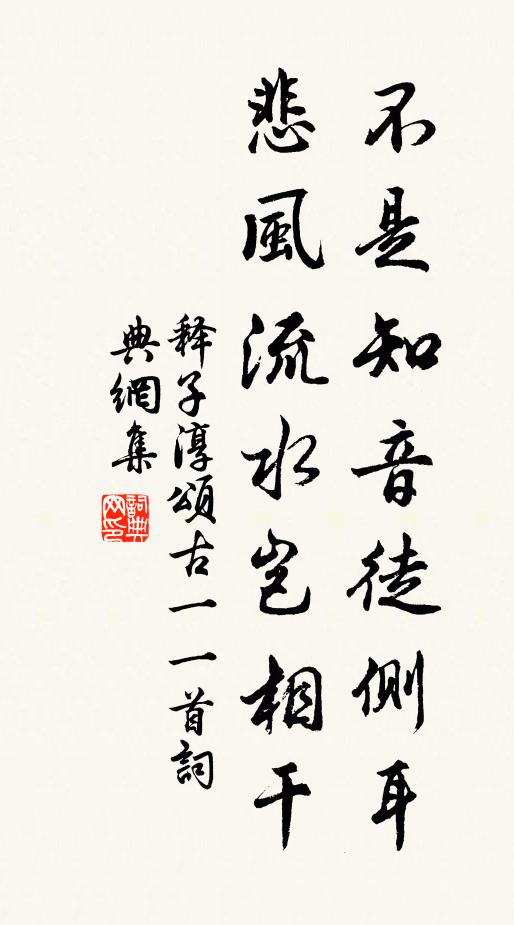 不是知音徒側耳
悲風流水豈相干
释子淳頌古一一首詞
典網集
詞典網印